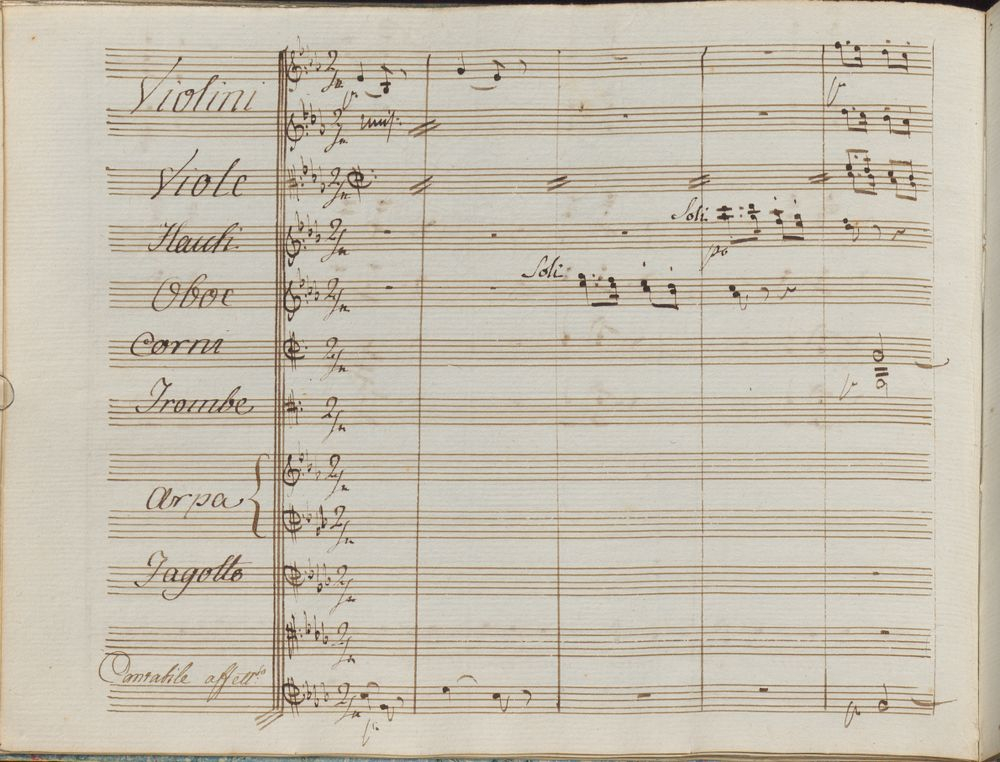 Violini
unis:
Viole
Flauti
Soli
po
Oboe
Soli
Corni
Trombe
Arpa
Fagotto
Cantabile affett:so